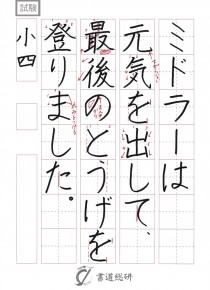 試験
ミドラーは
元気を出して、
最後のとうげを
登りました。
小四
書道総研